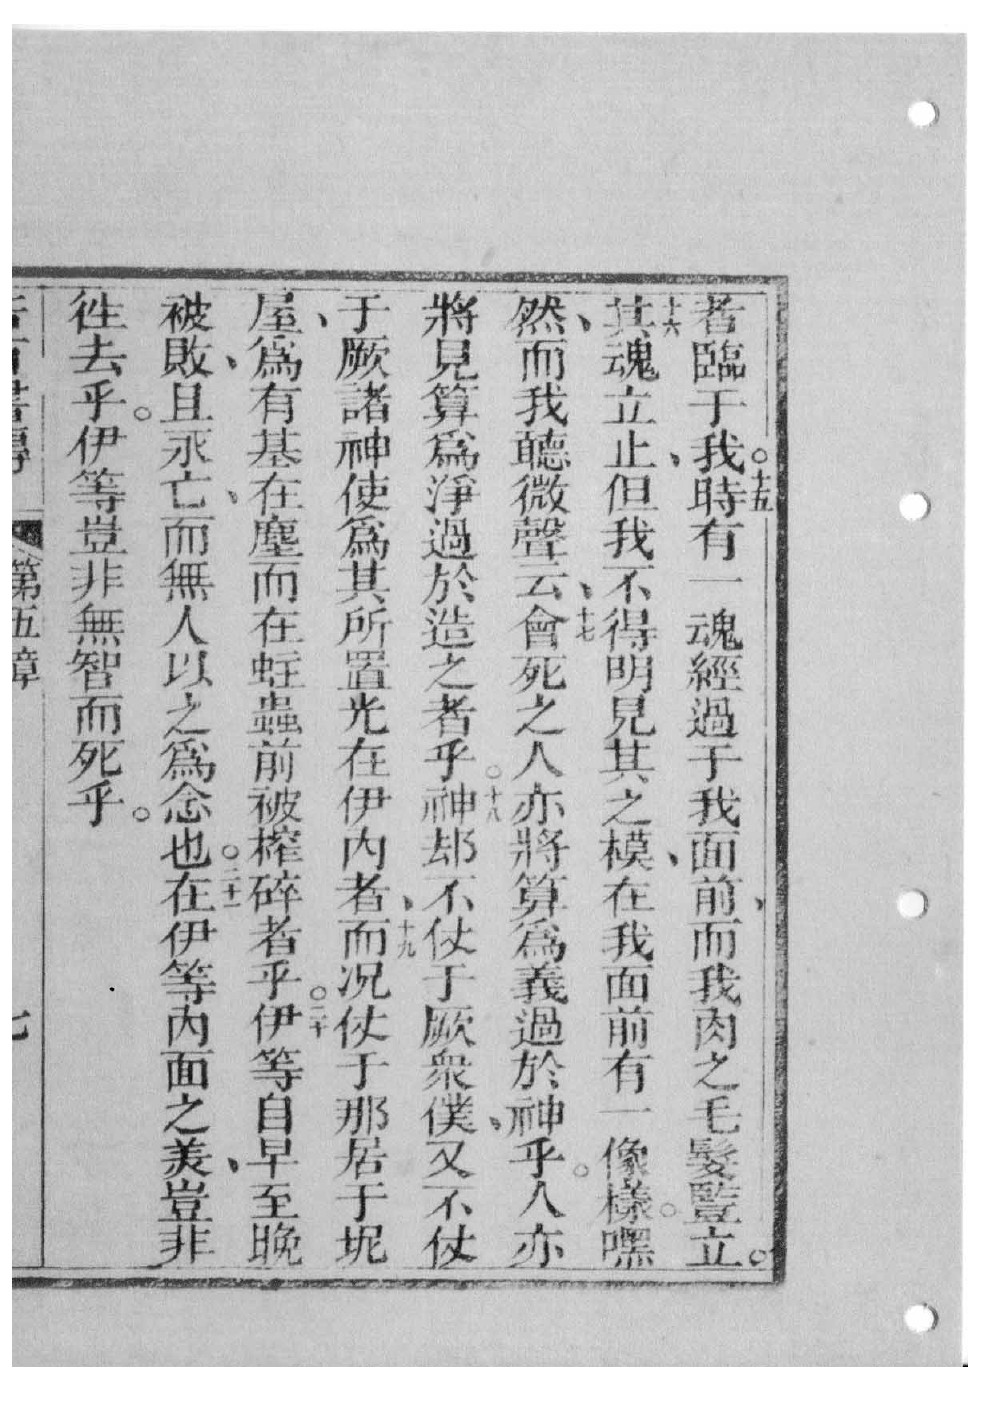 者臨于我。十五時有一魂經過于我面前、而我肉之毛髮豎立。
十六其魂立止、但我不得明見其之模、在我面前有一像樣。嘿
然、而我聽微聲云、十七會死之人亦將算爲義過於神乎。人亦
將見算爲淨過於造之者乎。十八神却不仗于厥衆僕、又不仗
于厥諸神使爲其所置光在伊內者、十九而况仗于那居于坭
屋、爲有基在塵而在蛀蟲前被榨碎者乎。二十伊等自早至晚
被敗、且永亡、而無人以之爲念也。二十一在伊等內面之美、豈非
徃去乎。伊等豈非無智而死乎。
第五章
七